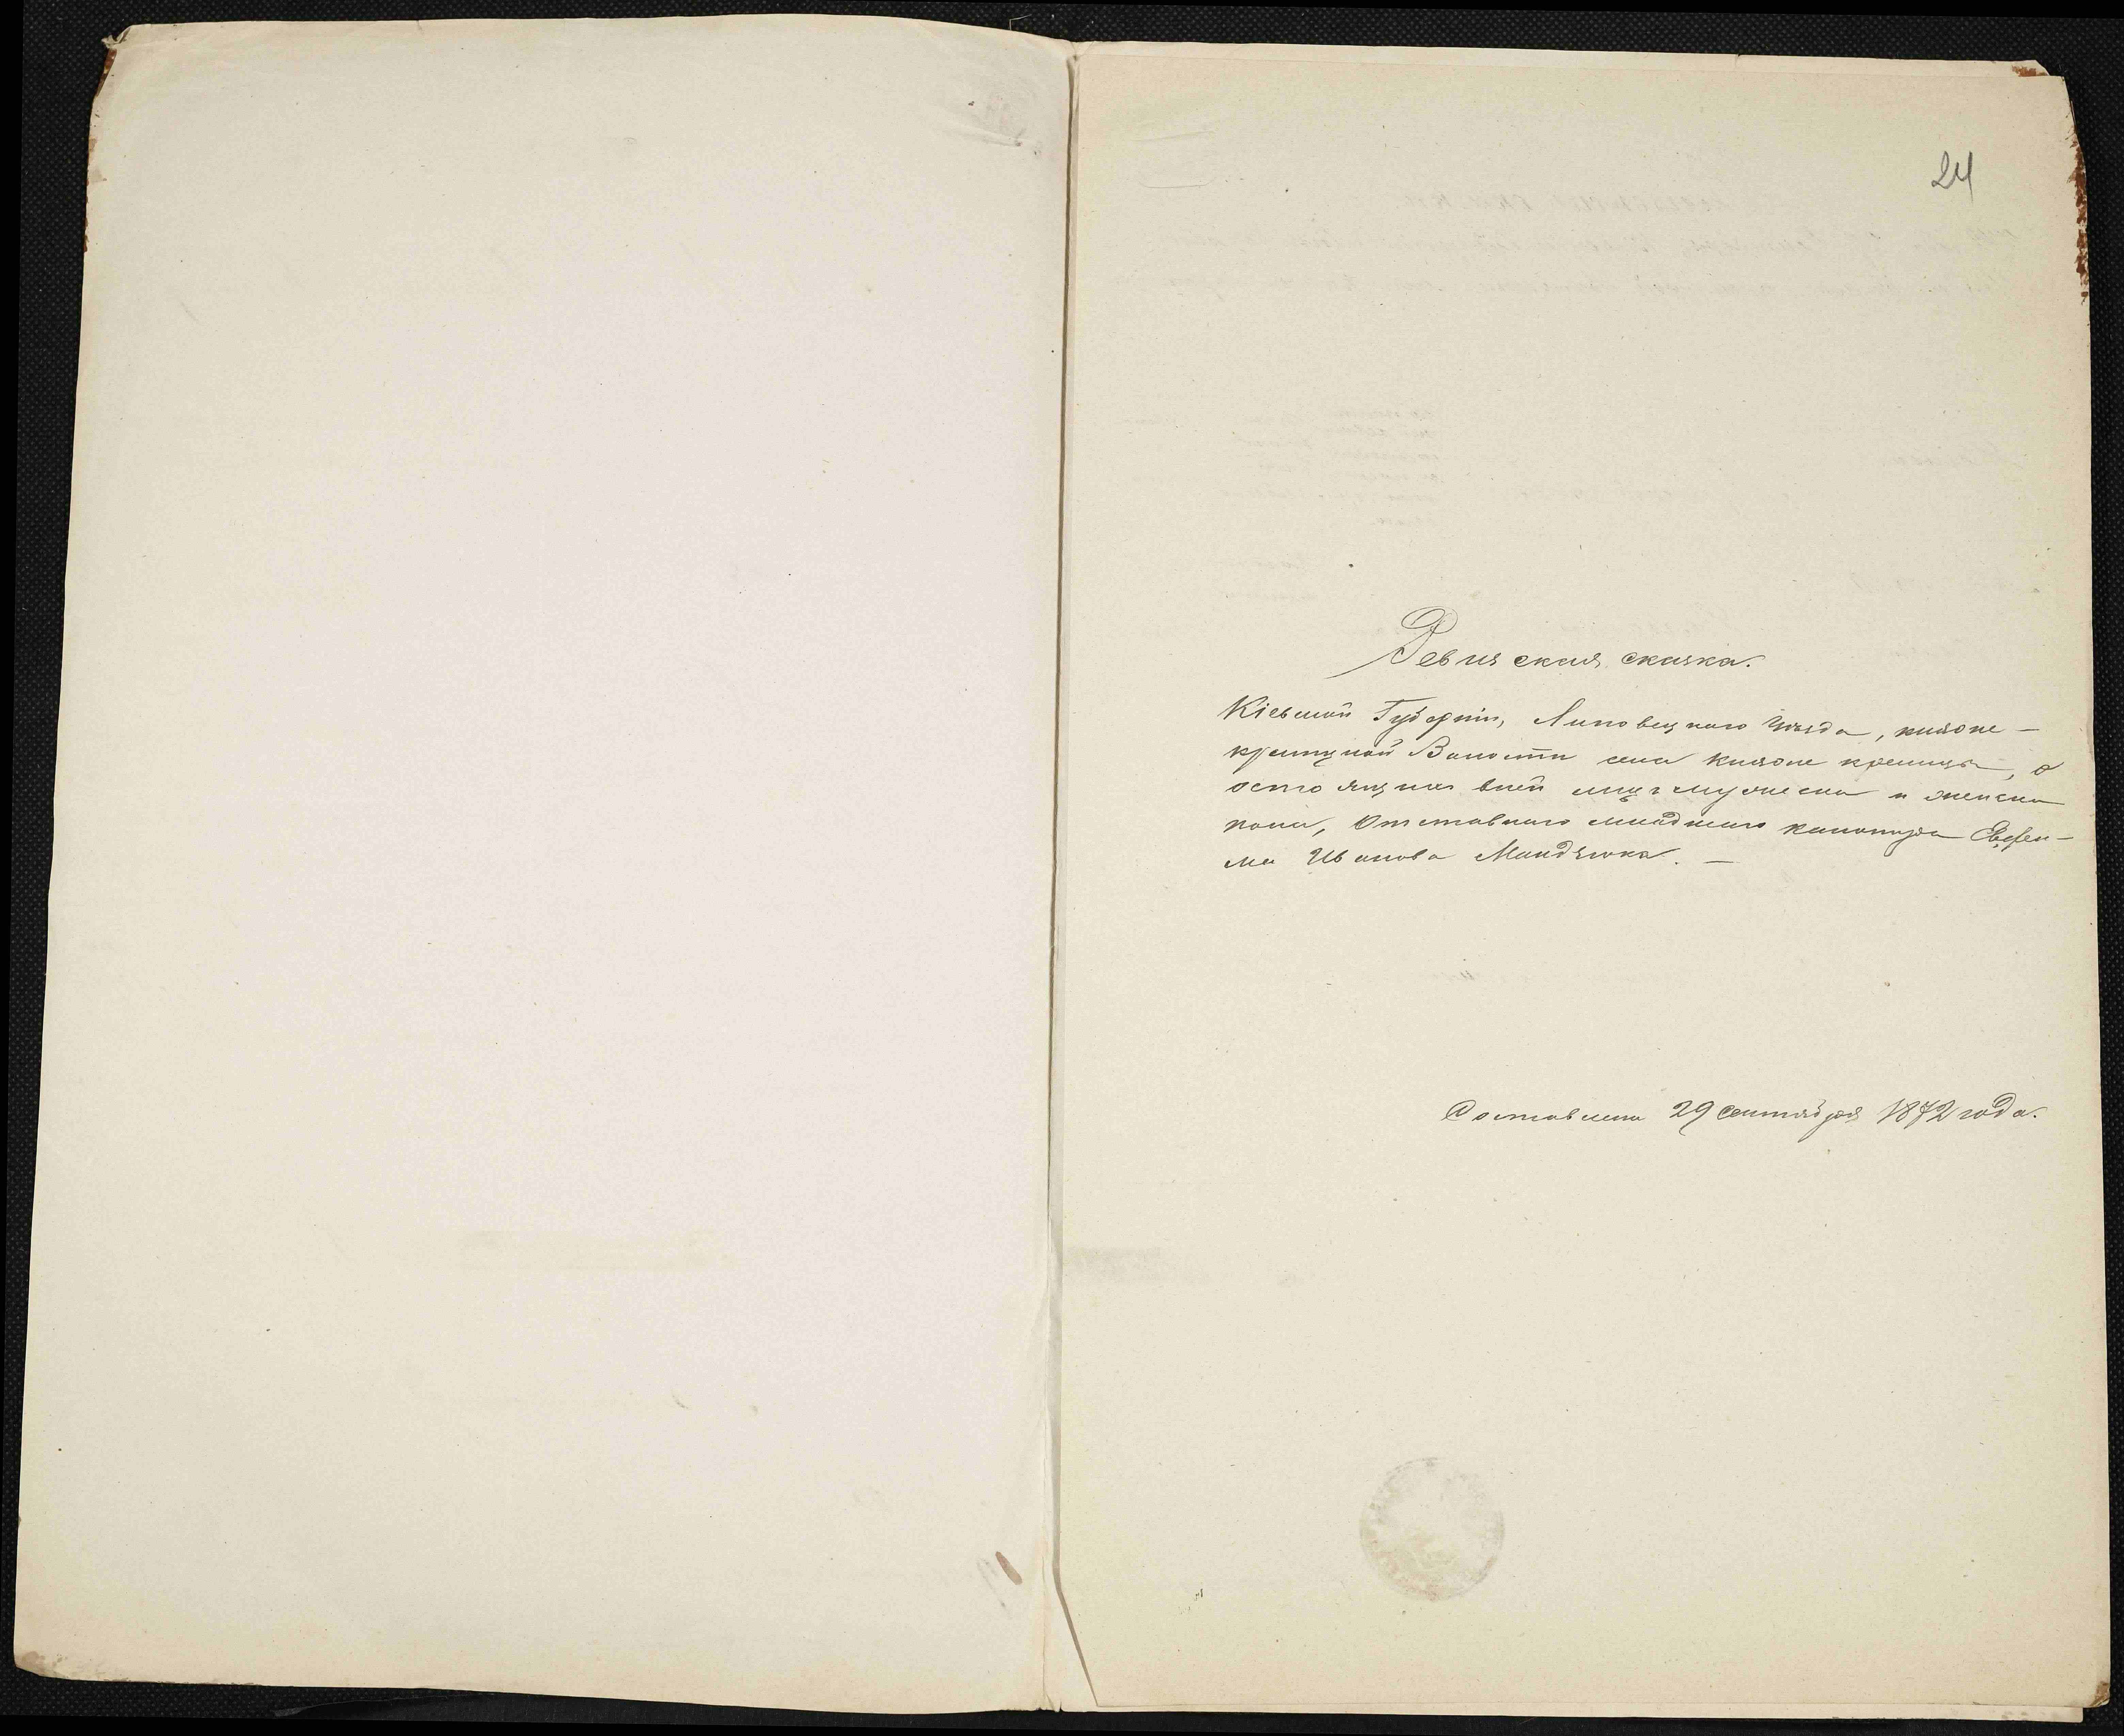 24
Ревизская сказка.
Кіевской Губерніи, Липовецкаго Уѣзда, княже-
кринецкой Волости села Княже криницы, о
остоящихъ въ ней лицъ мужеска и женска
пола, Отставнаго младшаго канонира Евфи-
ма Иванова Мандзюка. —
Составлена 29 Сентября 1872 года.